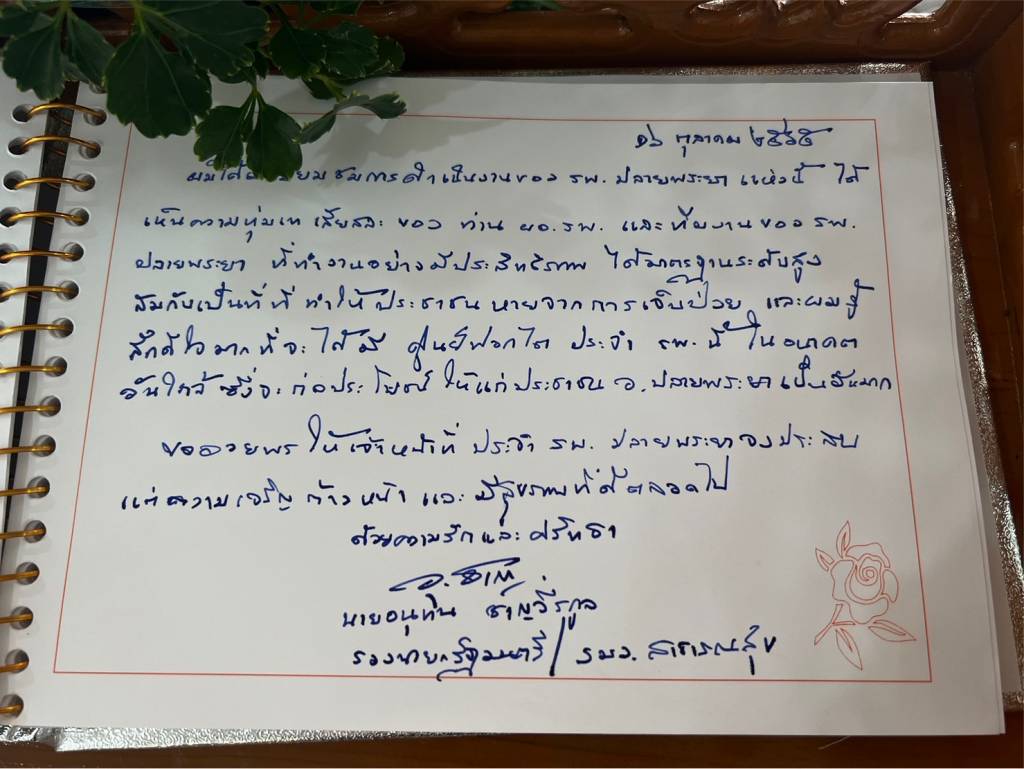 ๑๖ ตุลาคม ๒๕๖๕
ผมได้มาเยี่ยมชมการดำเนินงานของ รพ. ปลายพระยา แห่งนี้ ได้
เห็นความทุ่มเท เสียสละ ของ ท่าน ผอ.รพ. และทีมงานของ รพ.
ปลายพระยา ที่ทำงานอย่างมีประสิทธิภาพ ได้มาตรฐานระดับสูง
สมกับเป็นที่ที่ ทำให้ประชาชน หายจากการเจ็บป่วย และผมรู้
สึกดีใจมากที่จะได้มี ศูนย์ฟอกไต ประจำ รพ. นี้ ในอนาคต
อันใกล้ ซึ่งจะ ก่อประโยชน์ ให้แก่ประชาชน อ.ปลายพระยา เป็นอันมาก
ขออวยพร ให้เจ้าหน้าที่ ประจำ รพ. ปลายพระยา จงประสบ
แต่ความเจริญ ก้าวหน้า และ มีสุขภาพที่ดีตลอดไป
ด้วยความรักและศรัทธา
นายอนุทิน ชาญวีรกูล
รองนายกรัฐมนตรี / รมว. สาธารณสุข